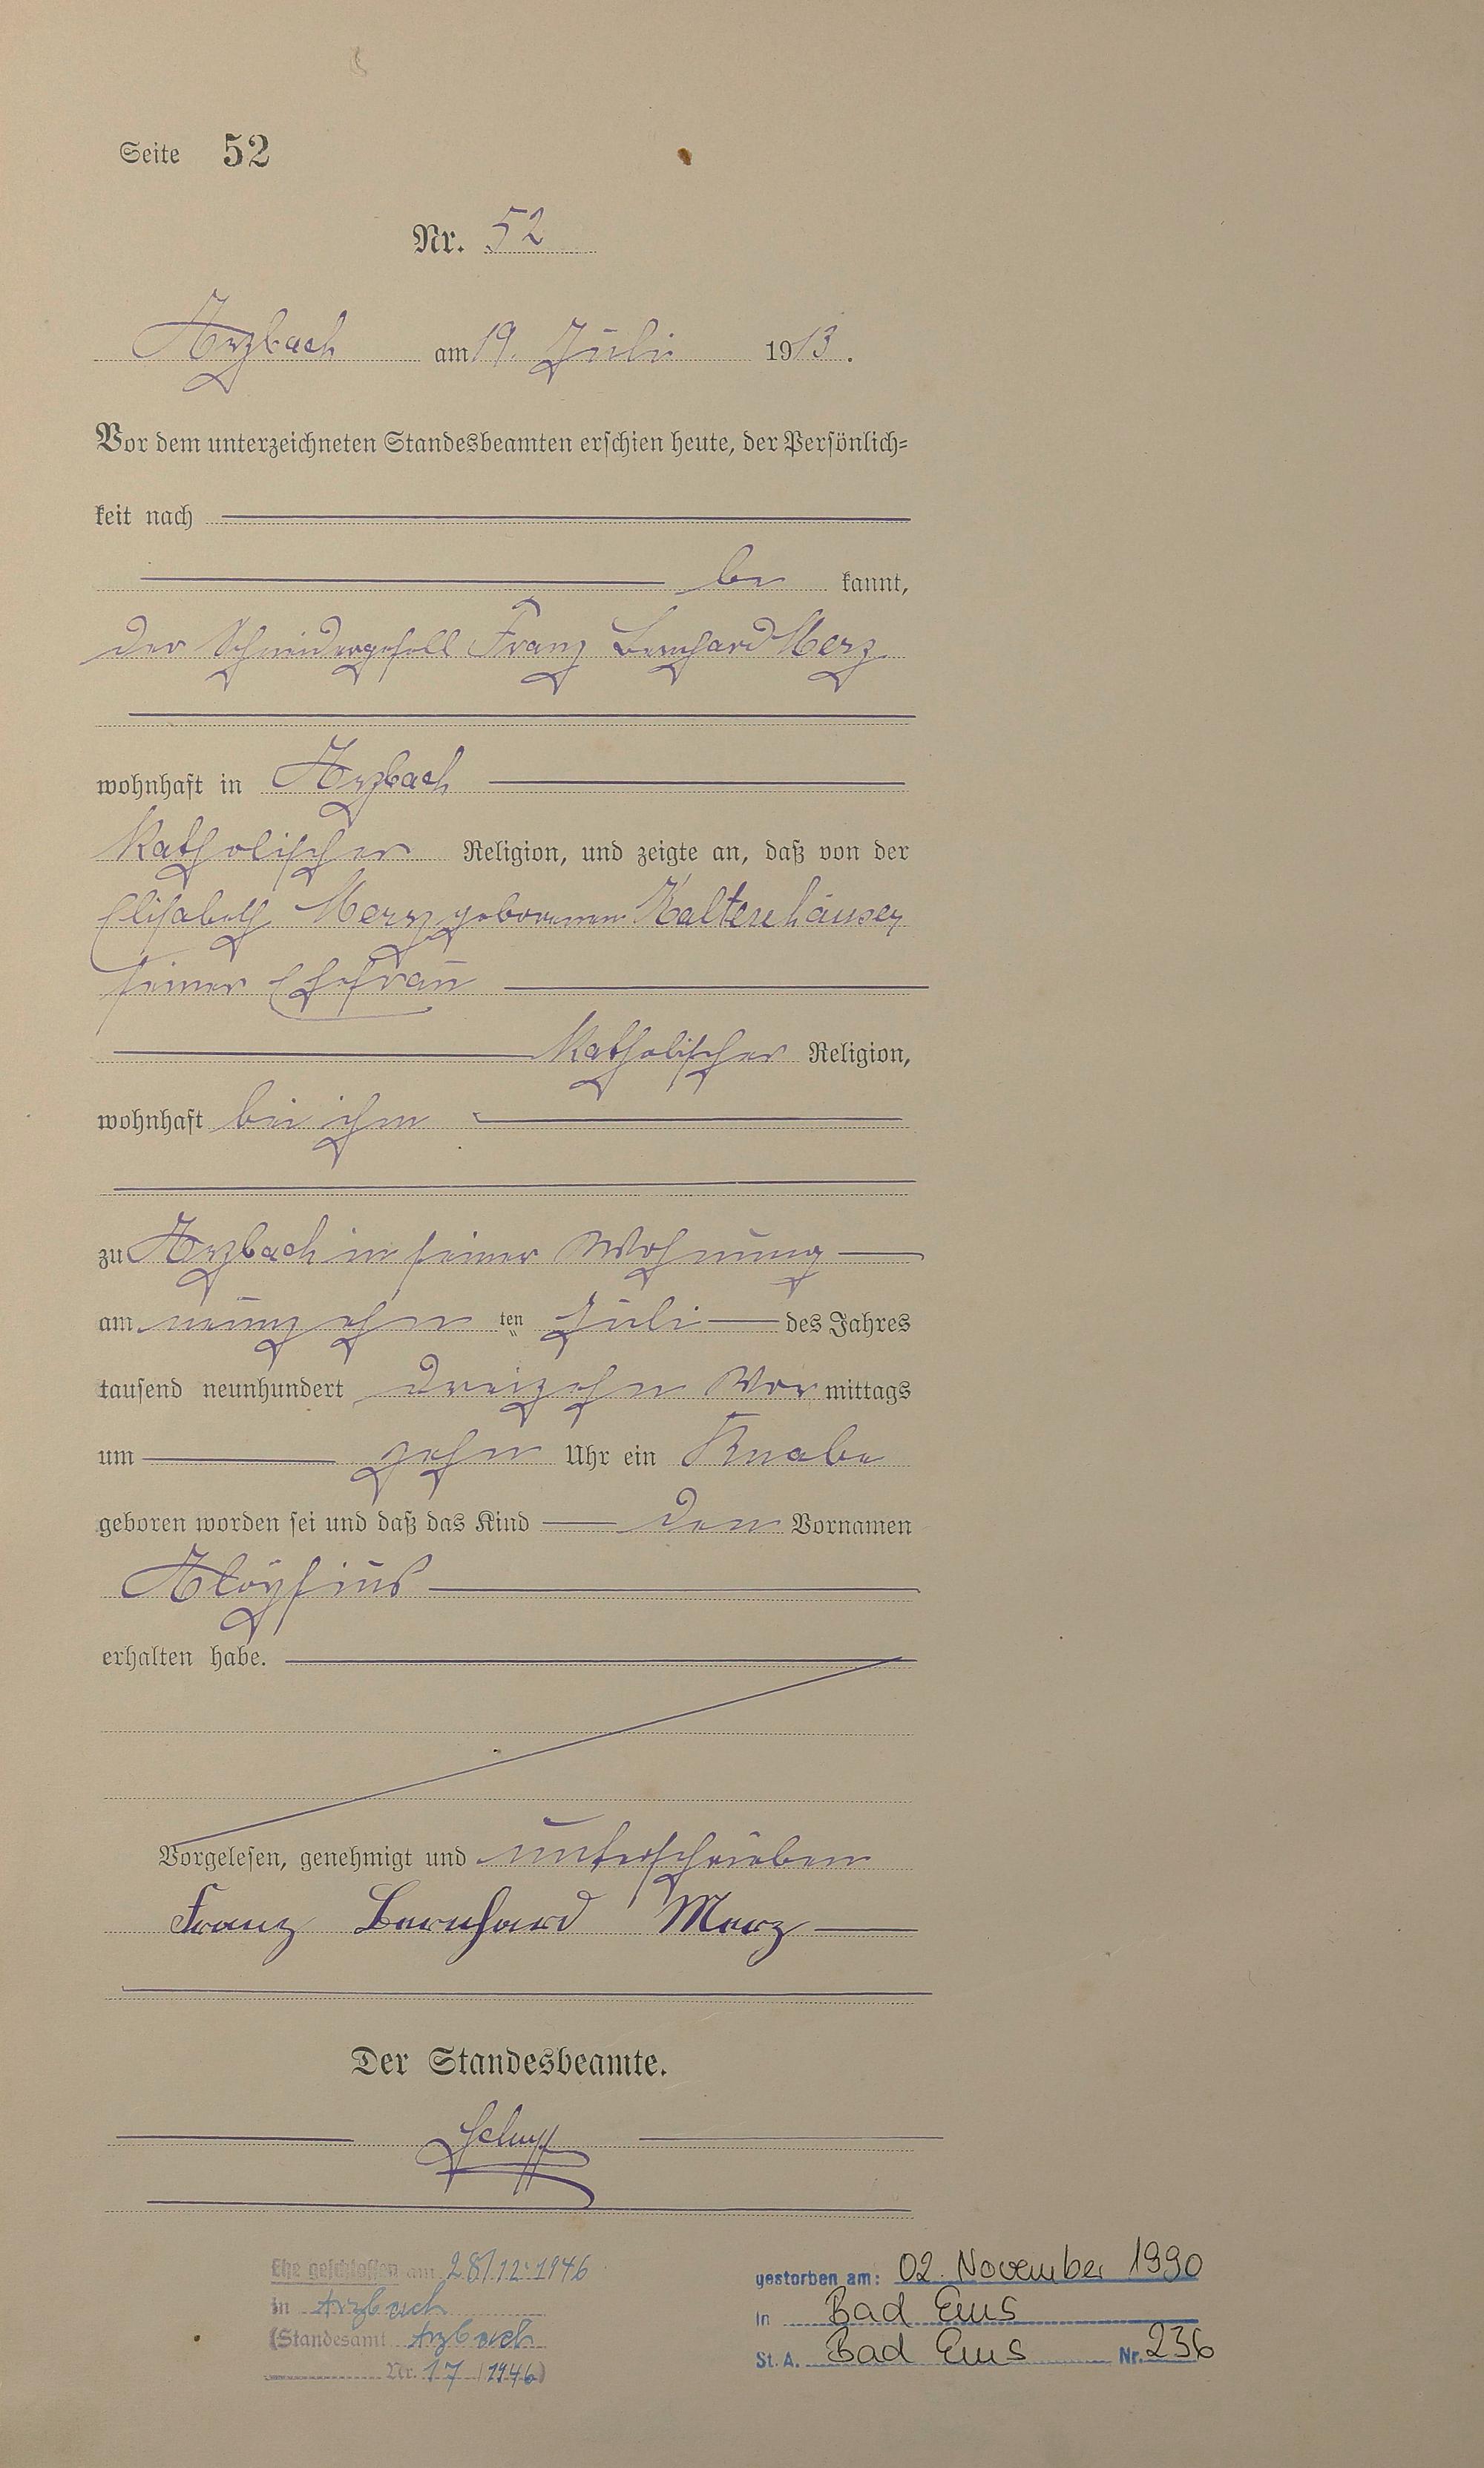 Seite 52
Nr. 52
Arzbach am 19. Juli 1913.
Vor dem unterzeichneten Standesbeamten erschien heute, der Persönlich-
keit nach
be kannt,
der Schneidergesell Franz Bernhard Merz
wohnhaft in Arzbach
Katholischer Religion, und zeigte an, daß von der
Elisabeth Merz geborenen Kaltenhäuser
seiner Ehefrau
Katholischer Religion,
wohnhaft bei ihm
zu Arzbach in seiner Wohnung
am neunzehn ten Juli des Jahres
tausend neunhundert dreizehn Vor mittags
um zehn Uhr ein Knabe
geboren worden sei und daß das Kind den Vornamen
Aloysius
erhalten habe.
Vorgelesen, genehmigt und unterschrieben
Franz Bernhard Merz
Der Standesbeamte.
Ehe geschlossen am 28.12.1946
in Arzbach
(Standesamt Arzbach
Nr. 17 / 1946)
gestorben am: 02. November 1990
in Bad Ems
St. A. Bad Ems Nr. 236